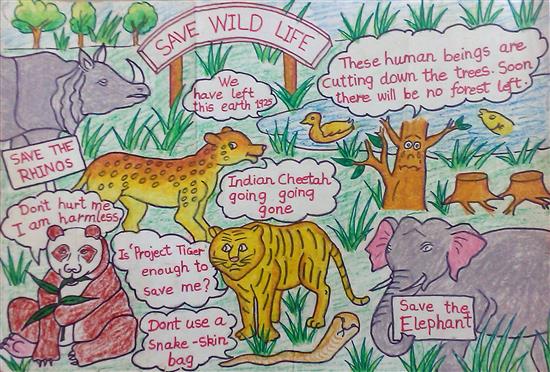 SAVE WILD LIFE
These human beings are
cutting down the trees. Soon
there will be no forest left.
We
have left
this earth 1925
SAVE THE
RHINOS
Indian Cheetah
going going
gone
Dont hurt me
I am harmless
Is 'Project Tiger
enough to
save me?
Save the
Elephant
Dont use a
Snake-skin
bag